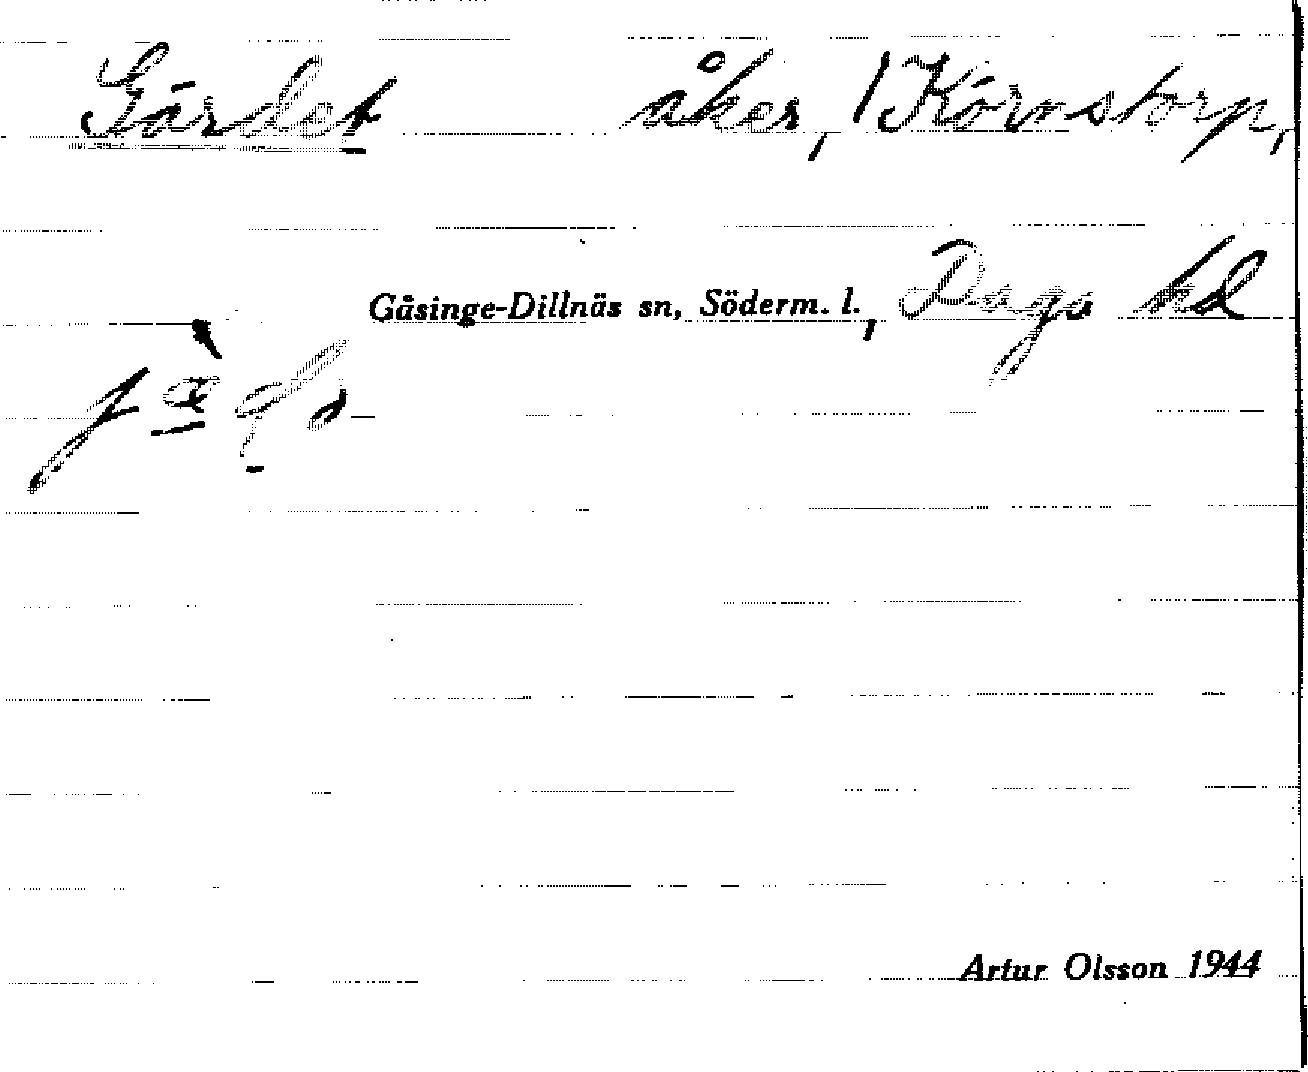 Gärdet åker, 1 Körnstorp,
Gåsinge-Dillnäs sn, Söderm. l., Daga hd
Artur Olsson 1944